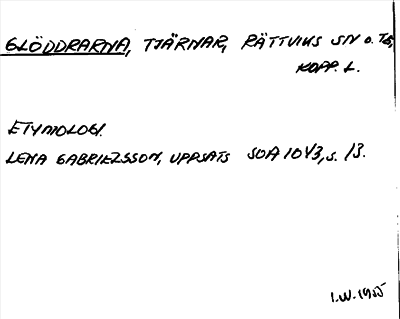 GLÖDDRARNA, TJÄRNAR, RÄTTVIKS SN o. TG,
KOPP. L.
ETYMOLOGI.
LENA GABRIELSSON, UPPSATS SOA 10 V3, s. 13.
I.W. 1985